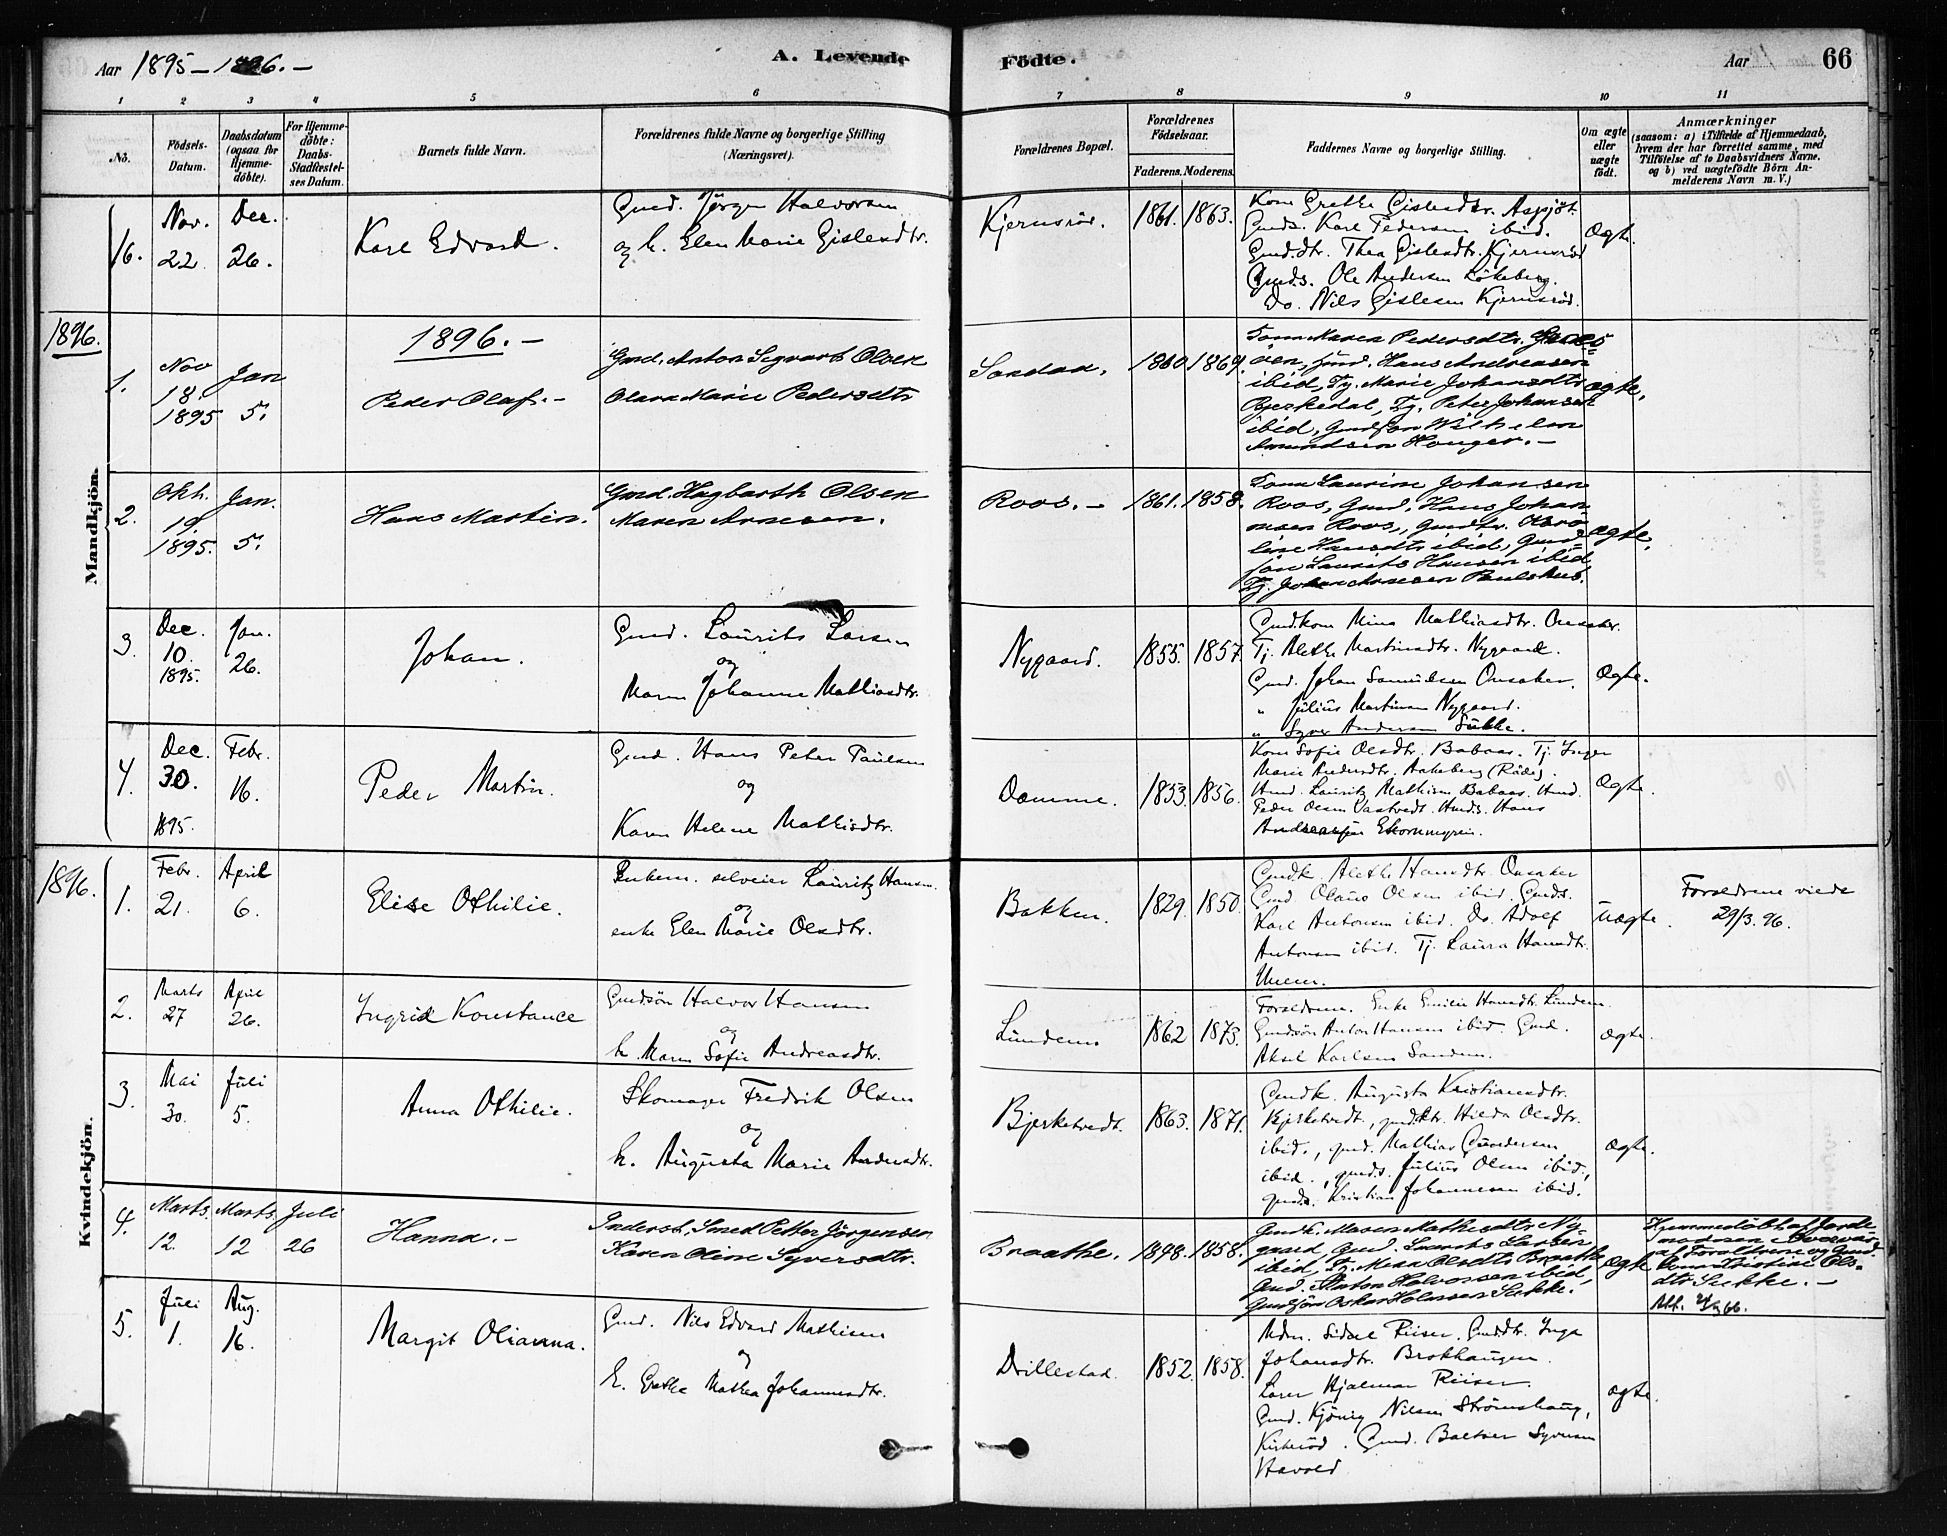 Aar 1895-1896.-
A. Levende
Födte.
Aar
66
1 2 3 4 5 6 7 8 9 10 11
No.
Födsels-
Datum.
Daabsdatum
(ogsaa for
Hjemme-
döbte).
For Hjemme-
döbte:
Daabs-
Stadfæstel-
ses Datum.
Barnets fulde Navn.
Forældrenes fulde Navne og borgerlige Stilling
(Næringsvei).
Forældrenes Bopæl.
Forældrenes
Födselsaar.
Faderens. Moderens.
Faddernes Navne og borgerlige Stilling.
Om ægte
eller
uægte
födt.
Anmærkninger
(saasom: a) i Tilfælde af Hjemmedaab,
hvem der har forrettet samme, med
Tilföielse af to Daabsvidners Navne,
og b) ved uægtefödte Börn An-
melderens Navn m. V.)
16.
Nov.
22
Dec.
26.
Karl Edvard.
Gmd. Jörgen Halvorsen
og h. Elen Marie Gislesdtr.
Kjernsröd.
1861. 1863.
Kone Grethe Gislesdtr. Aspjöt.
Gmds. Karl Pedersen ibid.
Gmd.dtr. Thea Gislesdtr. Kjernsröd
Gmds. Ole Andersen Lökeberg.
Do. Nils Gislesen Kjernsröd.
Ægte.
1896.
Mandkjön
1896.-
1.
Nov
18.
1895
Jan
5.
Peder Olaf.-
Gmd. Anton Sigvart Olsen
Olava Marie Pedersdtr
1860 1869.
Kona Maren Pedersdtr.
Gmd. Hans Andreasen
ibid, Tj. Marie Johansdtr
Bjerkedal, Tj. Peter Johansen
ibid, Gmdsön Wilhelm
Amundsen Hauger.-
Ægte.
2.
Okt.
19.
1895.
Jan.
5.
Hans Martin.
Gmd. Hagbarth Olsen
Maren Arnesen.
Roos.-
1861. 1858.
Kona Laurine Johansen
Roos, Gmd. Hans Johan-
nsen Roos, Gmdtr. Karo-
line Hansdtr ibid, Gmd-
sön Laurits Hansen ibid,
Tj. Johan Arnesen Paulshus.
Ægte.
3.
Dec.
10.
1895.
Jan.
26.
Johan.
Gmd. Laurits Larsen
og
Maren Johanne Mathiasdtr.
Nygaard.
1855. 1857.
Gmdkone Mina Mathiasdtr. Onsaker.
Tj. Alethe Martinsdtr. Nygaard.
Gmd. Johan Samuelsen Onsaker.
" Julius Martinsen Nygaard.
" Syver Andersen Sukke.
Ægte.
4.
Dec.
30.
1895.
Febr.
16.
Peder Martin.
Gmd. Hans Peter Paulsen
og
Karen Helene Mathisdtr.
Damme.
1853. 1856.
Kone Sofie Olsdtr. Babaas. Tj. Inger
Marie Andersdtr. Aakeberg (Råde).
Hmd. Lauritz Mathisen Babaas. Hmd.
Peder Olsen Vastvedt. Hmds. Hans
Ægte.
1896.
Kvindekjön.
1.
Febr.
21.
April
6.
Elise Othilie.
Enkem. selveier Lauritz Hansen.
og
enke Elen Marie Olsdtr.
Bakken.
1829. 1850.
Gmdk. Alethe Hansdtr. Onsaker
Gmd Olaus Olsen ibid. Gmds.
Karl Antonsen ibid. Do. Adolf
Antonsen ibid. Tj. Laura Hansdtr.
Uægte.
Forældrene viede
29/3. 96.
2.
Marts
27
April
26.
Ingrid Konstance
Gmdsön Halvor Hansen
og
h. Maren Sofie Andreasdtr.
Lundem
1862 1873.
Forældrene. Enke Emilie Hansdtr. Lundem.
Gmdsön Anton Hansen ibid. Gmd.
Aksel Karlsen Sandem.
Ægte.
3.
Mai
30.
Juli
5.
Anna Othilie.
Skomager Fredrik Olsen
og
h. Augusta Marie Andersdtr.
Bjerketvedt.
1863. 1871.
Gmdk. Augusta Kristiansdtr.
Bjerketvedt., gmdktr. Hilda Olsdtr.
ibid., gmd. Mathias Gundersen
ibid., gmds. Julius Olsen ibid.,
gmds. Kristian Johannesen ibid.
Ægte.
4.
Marts.
12.
Marts
12
Juli
26
Hanna.-
Inderst, Smed Petter Jörgensen
Karen Oline Syversdtr.
Braathe.
1848. 1858.
Gmdk. Maren Mathisdtr Ny-
gaard, Gmd. Laurits Larsen
ibid, Tj. Mina Olsdtr Braathe
Gmd. Anton Halvorsen ibid,
Gmdsön Oskar Holmsen Sukke.
Ægte
Hjemmedöbt af Jorde-
moderen
af Forældrene og Gmd.
Kona Kristine Ols-
dtr Sukke.-
5.
Juli
1.
Aug.
16.
Margit Olianna.
Gmd. Nils Edvard Mathisen
og
h. Grethe Mathea Johannesdtr.
Drillestad.
1852. 1858.
Mdm. Sidsel Riiser. Gmd.dtr. Inga
Johansdtr. Brokhaugen.
Lærer Hjalmar Riiser.
Gmd. Kjönig Nilsen Strömshaug,
Kirkeröd. Gmd. Baltser Syversen
Havold
Ægte.